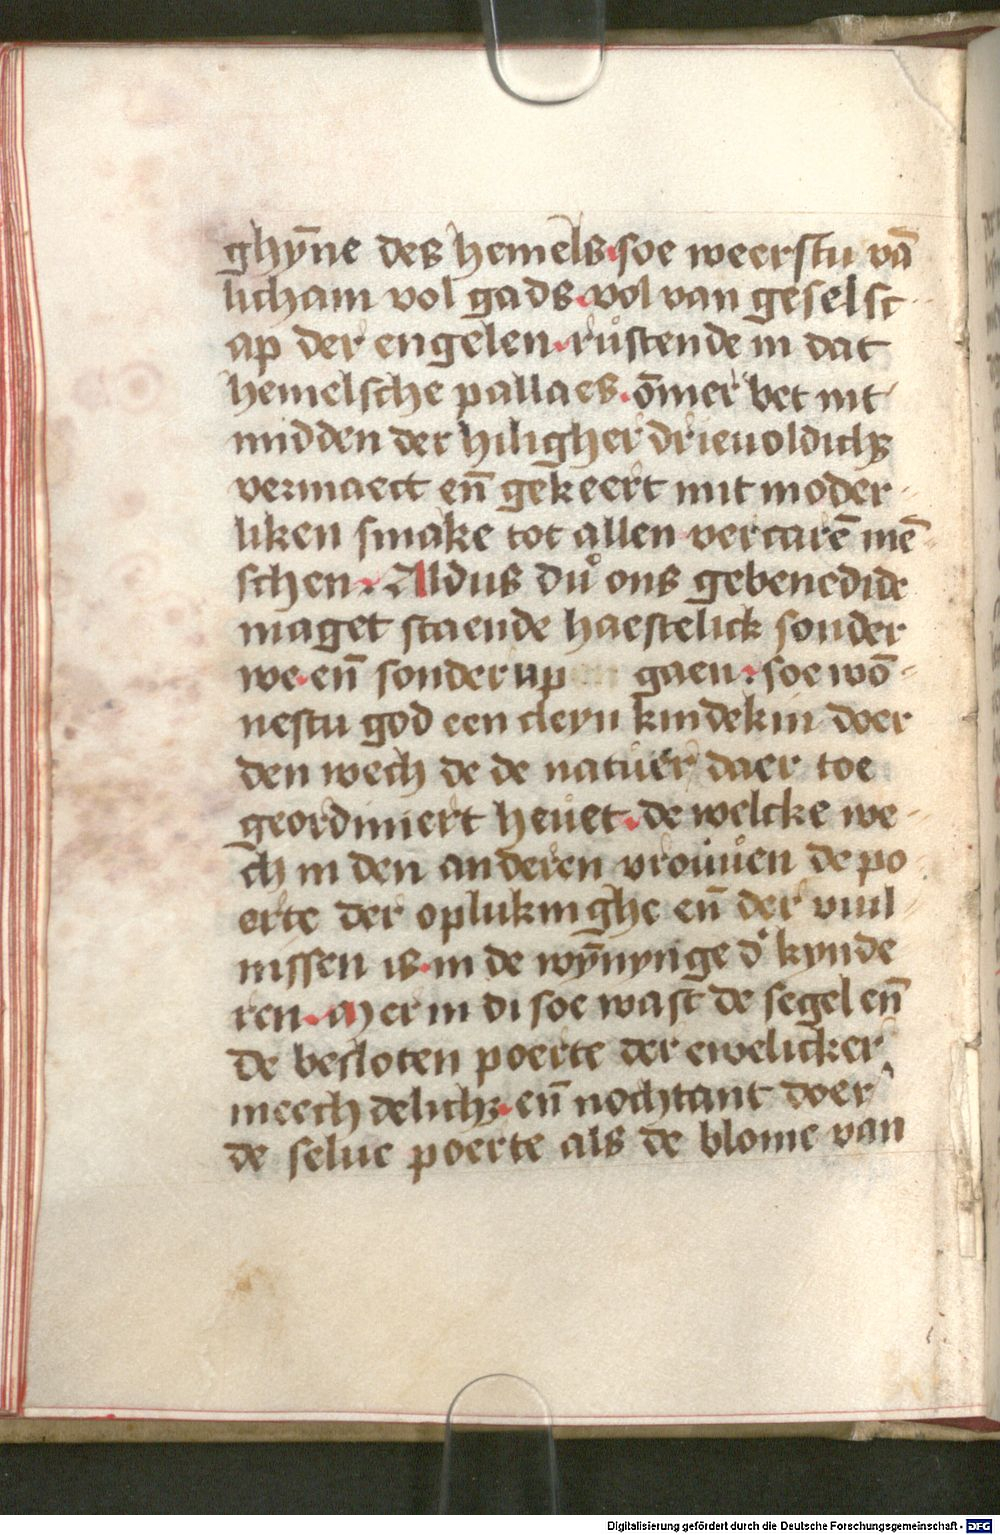 ghȳne des hemels. soe weerstu vā
licham vol gads. vol van geselsc-
ap der engelen. růstende in dat
hemelsche pallaes. ōmer bet int
midden der hiligher drieuoldichꝫ
vermaect en̄ gekeert mit moder-
liken smake tot allen vercarē mē-
schen. Aldus dů ons gebenedide
maget staende haestelick sonder
we. en̄ sonder up gaen. soe wō-
nestu god een cleyn kindekin doer
den wech de de natůer daer toe
geordiniert heůet. de welcke we-
ch in den anderen vrouůen de po-
erte der oplukinghe en̄ der vuil-
nissen is. in de wȳnynge dʼ kynde
ren. Mer in di soe wast de segel en̄
de besloten poerte der ewelicker
meechdelichꝫ. en̄ nochtant doer
de selue poerte als de blome van
Digitalisierung gefördert durch die Deutsche Forschungsgemeinschaft - DFG